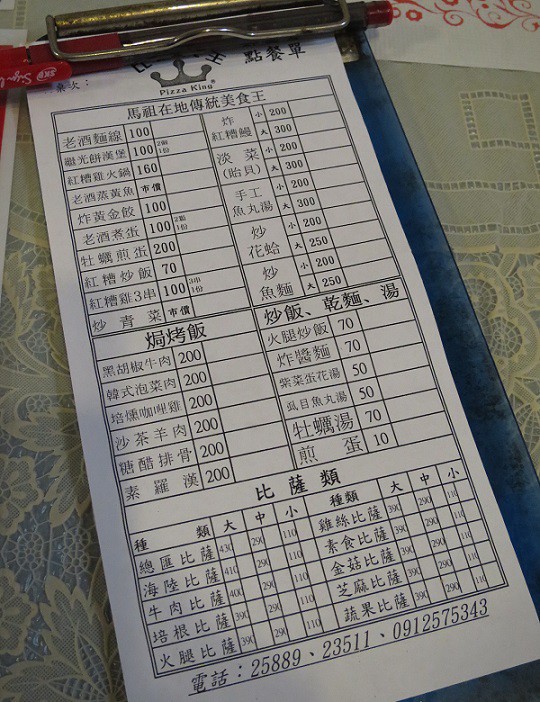 點餐單
桌次：
Pizza King
馬祖在地傳統美食王
老酒麵線 100
繼光餅漢堡 100 2顆1份
紅糟雞火鍋 160
老酒蒸黃魚 市價
炸黃金餃 100
老酒煮蛋 100 2顆1份
牡蠣煎蛋 200
紅糟炒飯 70
紅糟雞3串 100 3串1份
炒青菜 市價
炸紅糟鰻 小 200 大 300
淡菜(貽貝) 小 200 大 300
手工魚丸湯 小 200 大 300
炒花蛤 小 200 大 250
炒魚麵 小 200 大 250
焗烤飯
黑胡椒牛肉 200
韓式泡菜肉 200
培燻咖哩雞 200
沙茶羊肉 200
糖醋排骨 200
素羅漢 200
炒飯、乾麵、湯
火腿炒飯 70
炸醬麵 70
紫菜蛋花湯 50
虱目魚丸湯 50
牡蠣湯 70
煎蛋 10
比薩類
種類 大 中 小
總匯比薩 430 290 110
海陸比薩 410 290 110
牛肉比薩 400 290 110
培根比薩 390 290 110
火腿比薩 390 290 110
種類 大 中 小
雞絲比薩 390 290 110
素食比薩 390 290 110
金菇比薩 390 290 110
芝麻比薩 390 290 110
蔬果比薩 390 290 110
電話：25889、23511、0912575343